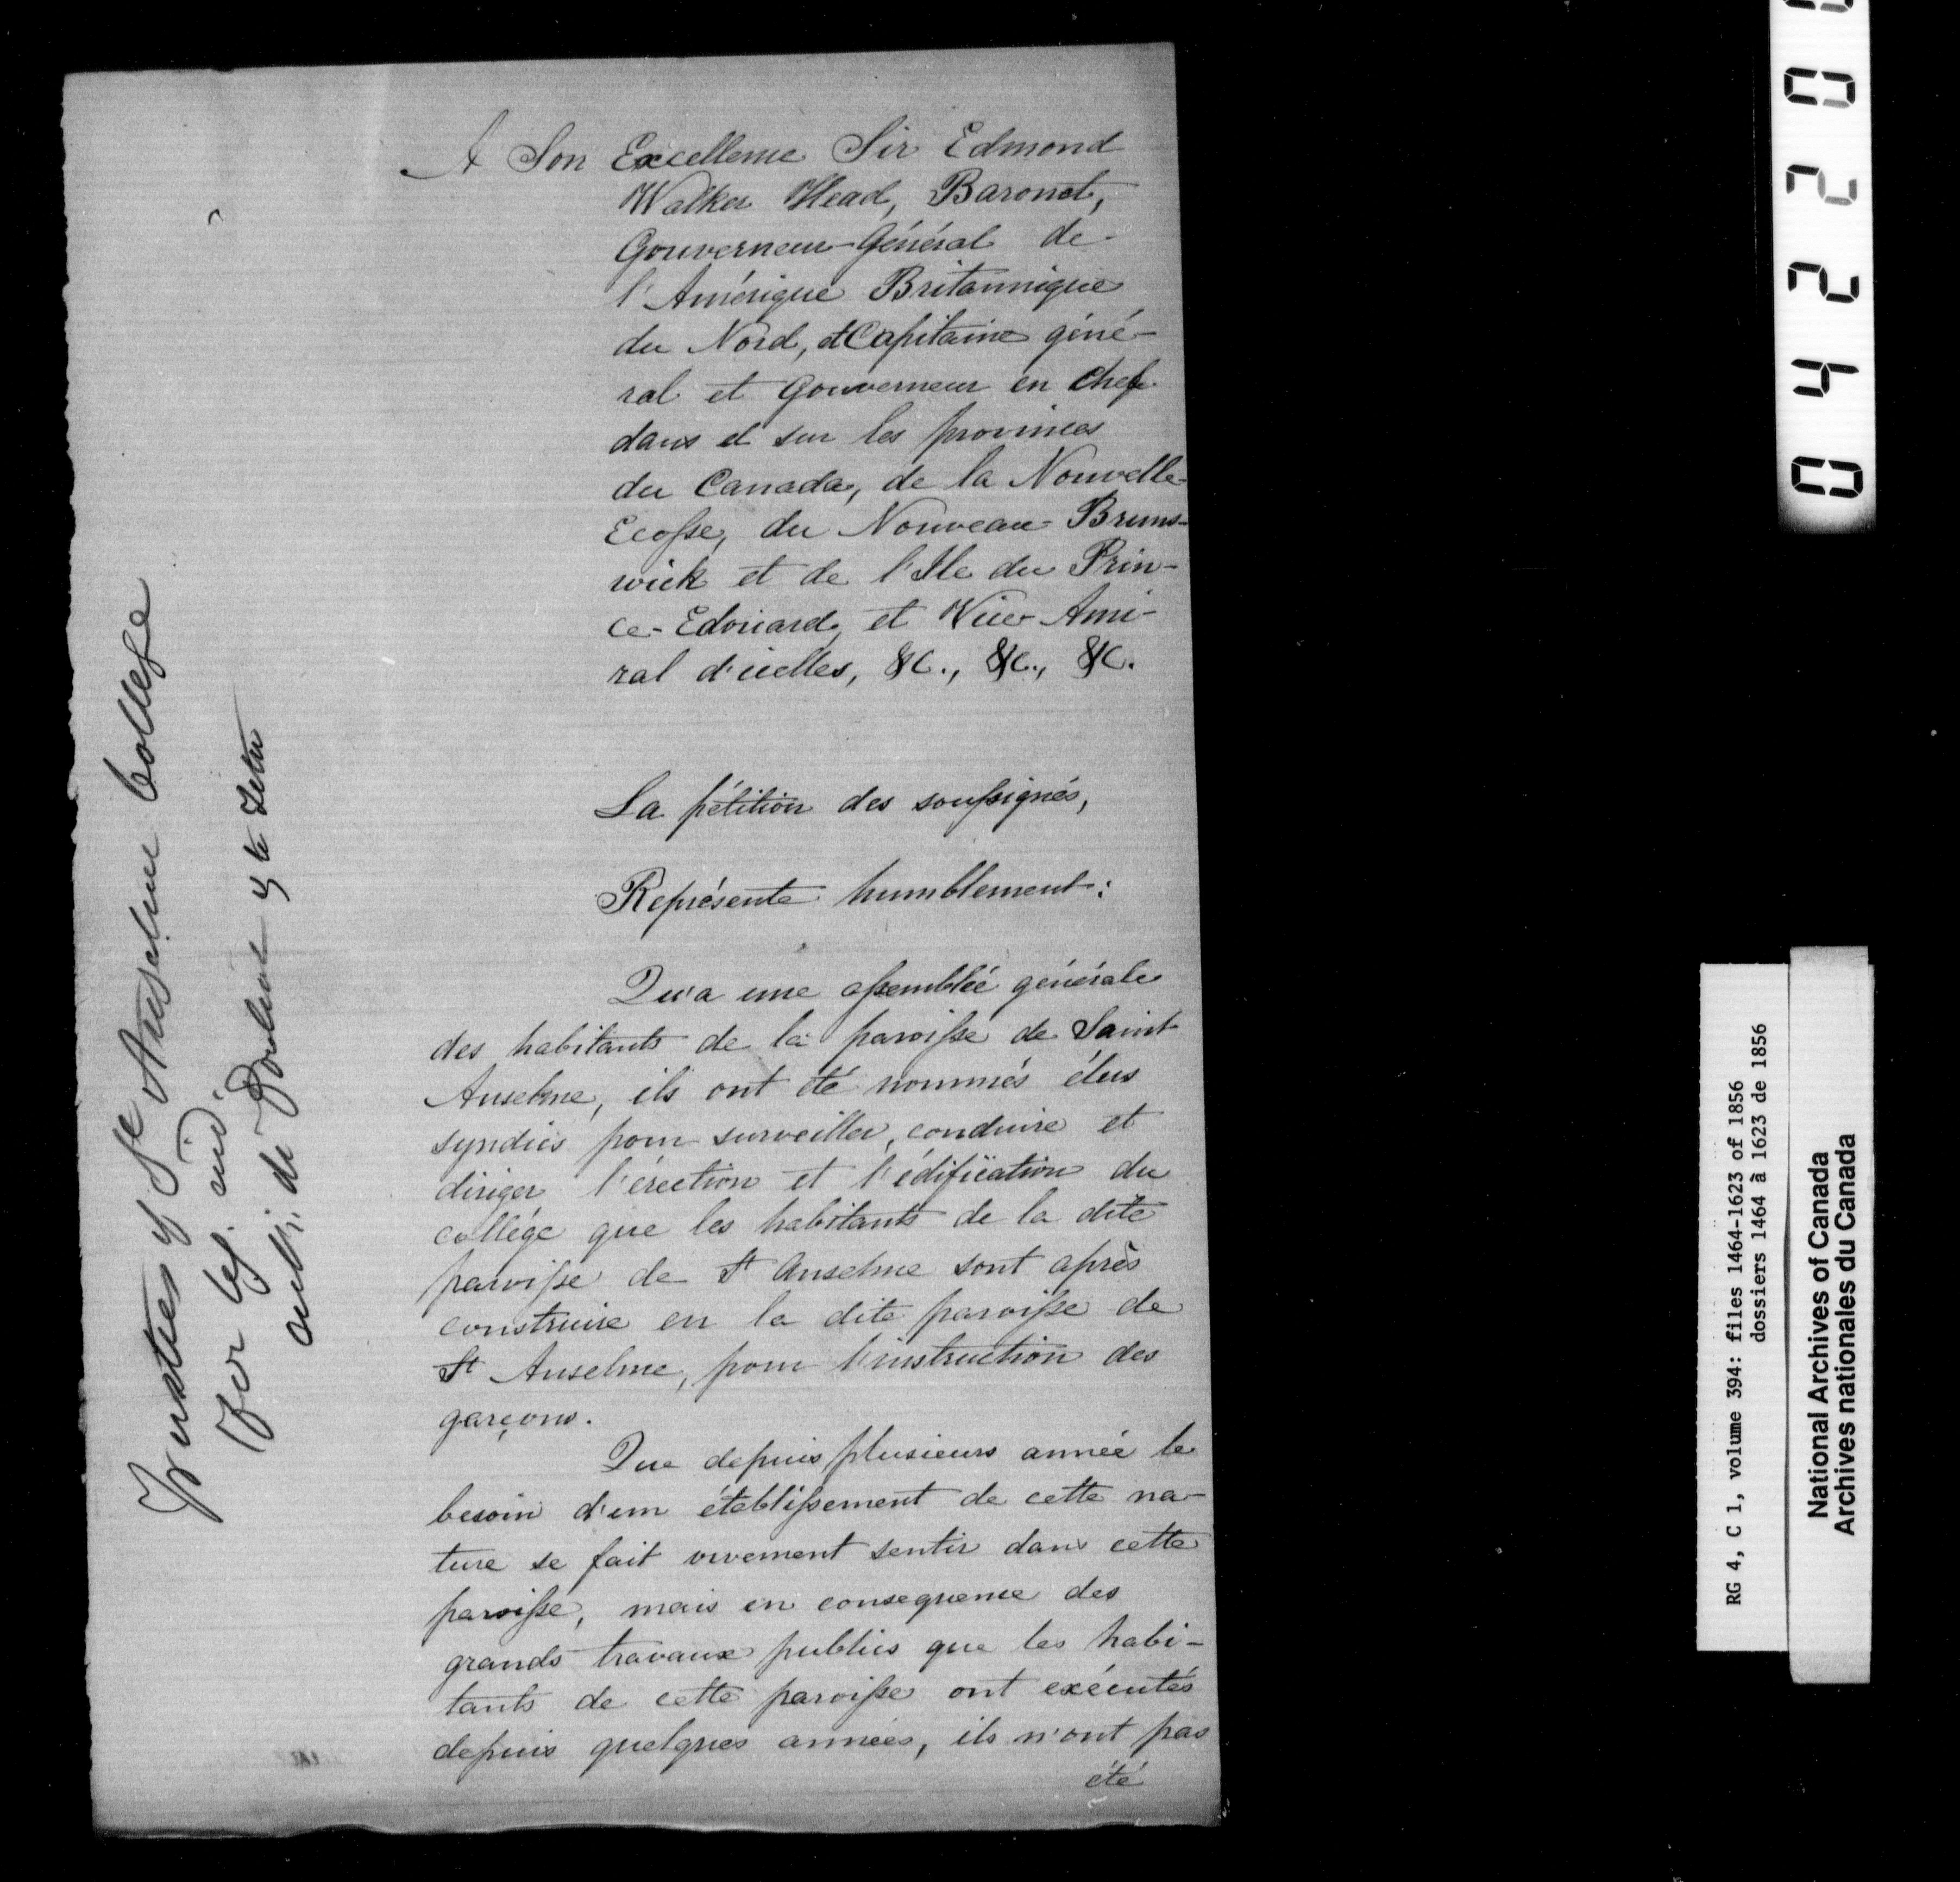 A Son Excellence Sir Edmond
Walker Head, Baronet,
Gouverneur-Général de
l'Amérique Britannique
du Nord, et Capitaine géné-
ral et Gouverneur en Chef
dans et sur les provinces
du Canada, de la Nouvelle-
Ecosse, du Nouveau-Bruns-
wick et de l'Ile du Prin-
ce-Edouard, et Vice-Ami-
ral d'icelles, &c., &c., &c.
La pétition des soussignés,
Représente humblement:
Qu'a une assemblée générale
des habitants de la paroisse de Saint
Anselme, ils ont été nommés élus
syndics pour surveiller, conduire et
diriger l'érection et l'édification du
collége que les habitants de la dite
paroisse de St Anselme sont après
construire en la dite paroisse de
St Anselme, pour l'instruction des
garçons.
Que depuis plusieurs année le
besoin d'un établissement de cette na-
ture se fait vivement sentir dans cette
paroisse, mais en consequence des
grands travaux publics que les habi-
tants de cette paroisse ont exécutés
depuis quelques années, ils n'ont pas
été
Trustees of St Anselme College
for Leg. aid.
0 4 2 2 0
RG 4, C 1, volume 394: files 1464-1623 of 1856
dossiers 1464 à 1623 de 1856
National Archives of Canada
Archives nationales du Canada